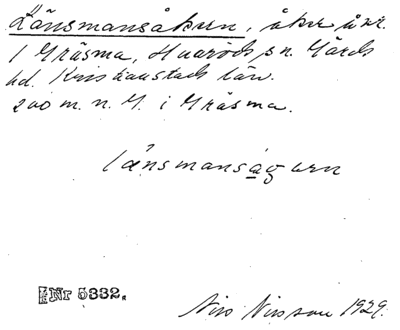 Länsmansåkern, åker å nr.
1 Gräsma, Huaröds sn. Gärds
hd. Kristianstads län.
200 m. n. G. i Gräsma.
länsmanság ern
Nr 5332.
Nils Nilsson 1929.